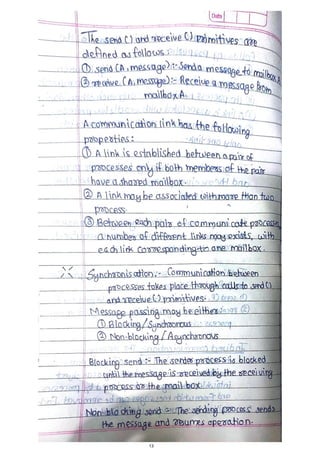 Date
The send () and receive () primitives are
defined as follows :-
① send (A, message) :- Send a message to mailbox A
② receive (A, message) :- Receive a message from
mailbox A.
A communication link has the following
properties :
① A link is established between a pair of
processes only if both members of the pair
have a shared mailbox.
② A link may be associated with more than two
process
③ Between each pair of communicate process
a number of different links may exists, with
each link corresponding to one mailbox.
Synchronisation :- Communication between
processes takes place through calls to send ()
and receive () primitives.
Message passing may be either
① Blocking / Synchronous
② Non-blocking / Asynchronous
Blocking send :- The sender process is blocked
until the message is received by the receiving
process or the mail box
Non blocking send :- The sending process sends
the message and resumes operation.
13